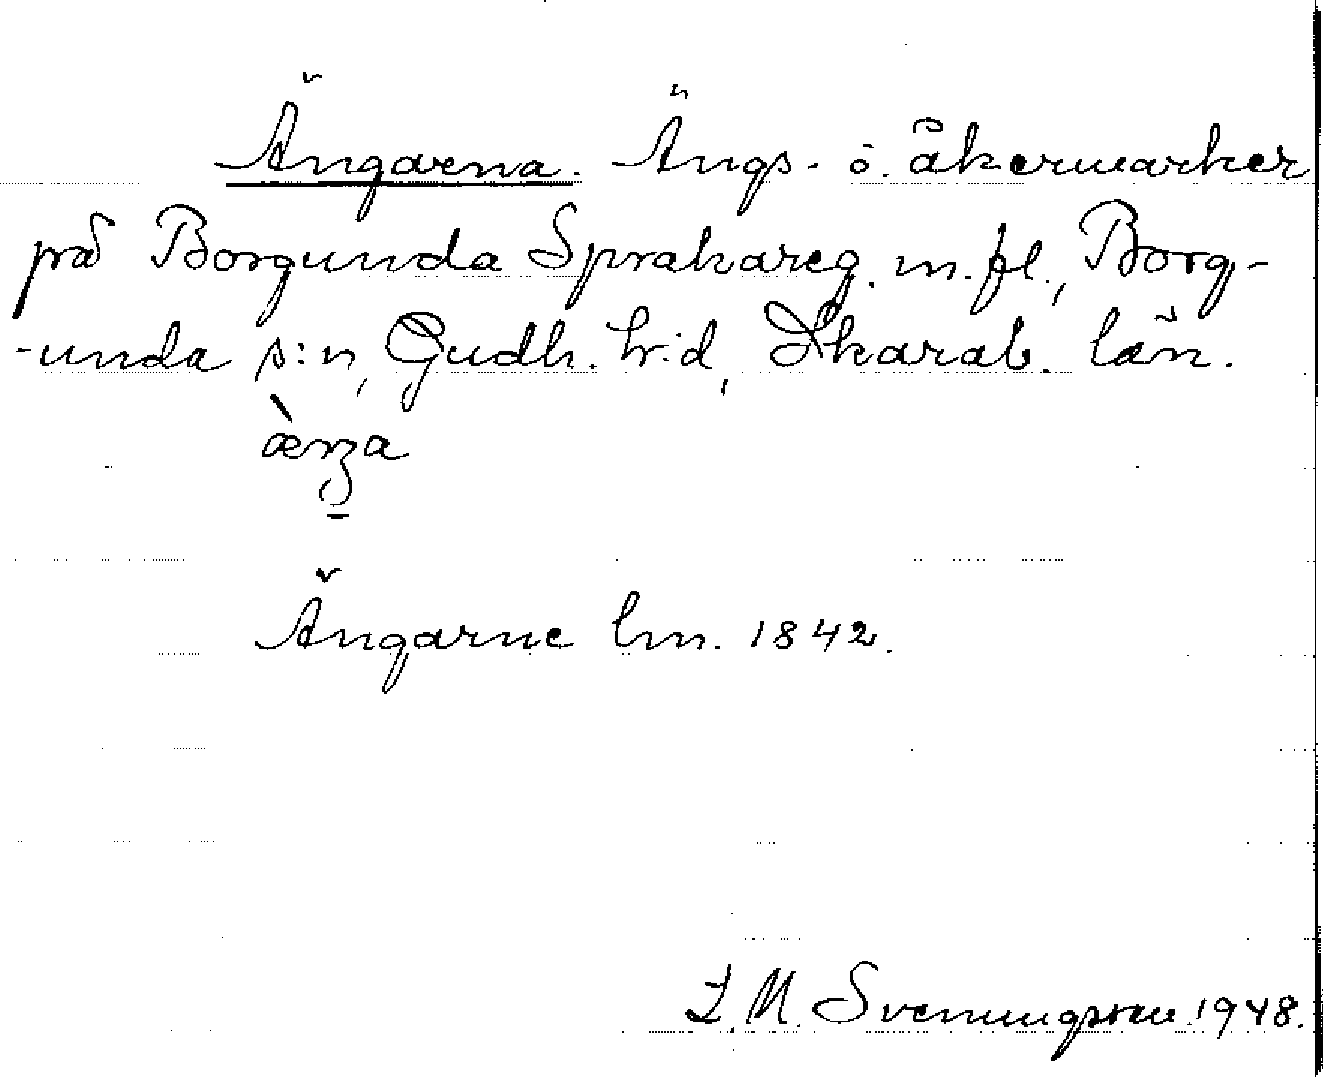 Ängarna. Ängs- o. åkermarker
på Borgunda Sprakareg. m.fl., Borg-
-unda s:n, Gudh. h:d, Skarab. län.
Ängarne lm. 1842.
L. M. Svenungsson 1948.